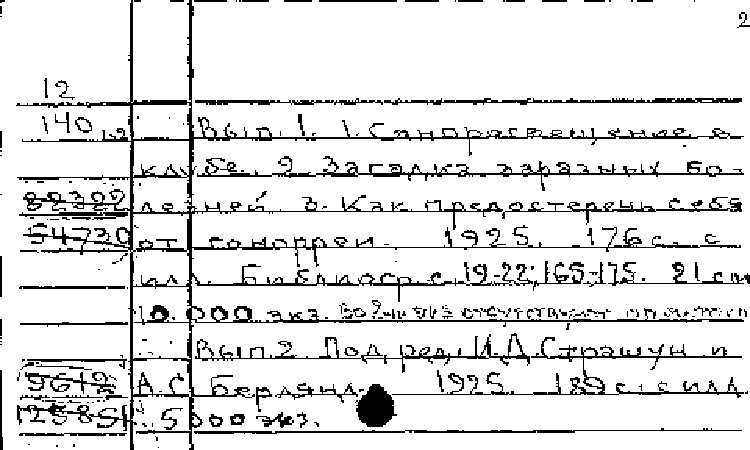 2
12
140 1,2 Вып. 1. 1. Санпросвещение в
клубе. 2. Загадка заразных бо-
82322 лезней. 3. Как предостеречь себя
54730 от гонорреи. 1925. 176 с. с
илл. Библиогр. с. 19-22; 165-175. 21 см
10.000 экз. отсутствует
Вып. 2. Под ред. И.Д. Страшун и
9612 А.С. Берлянд. 1925. 189 с. с илл
125851 5000 экз.